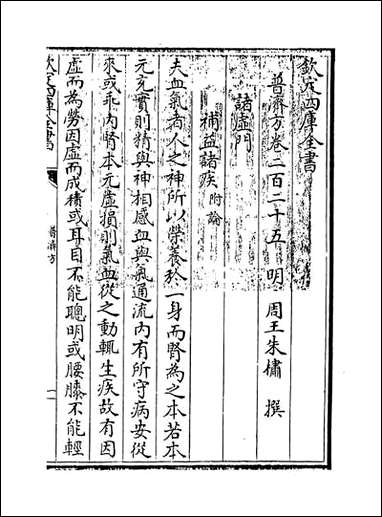 欽定四庫全書
普濟方卷二百二十五 明 周王朱橚 撰
諸虛門
補益諸疾 附論
夫血氣者人之神所以榮養於一身而腎為之本若本
元充實則精與神相感血與氣通流內有所守病安從
來或乖內腎本元虛損則氣血從之動輒生疾故有因
虛而為勞因虛而成積或耳目不能聰明或腰膝不能輕
欽定四庫全書
普濟方
一